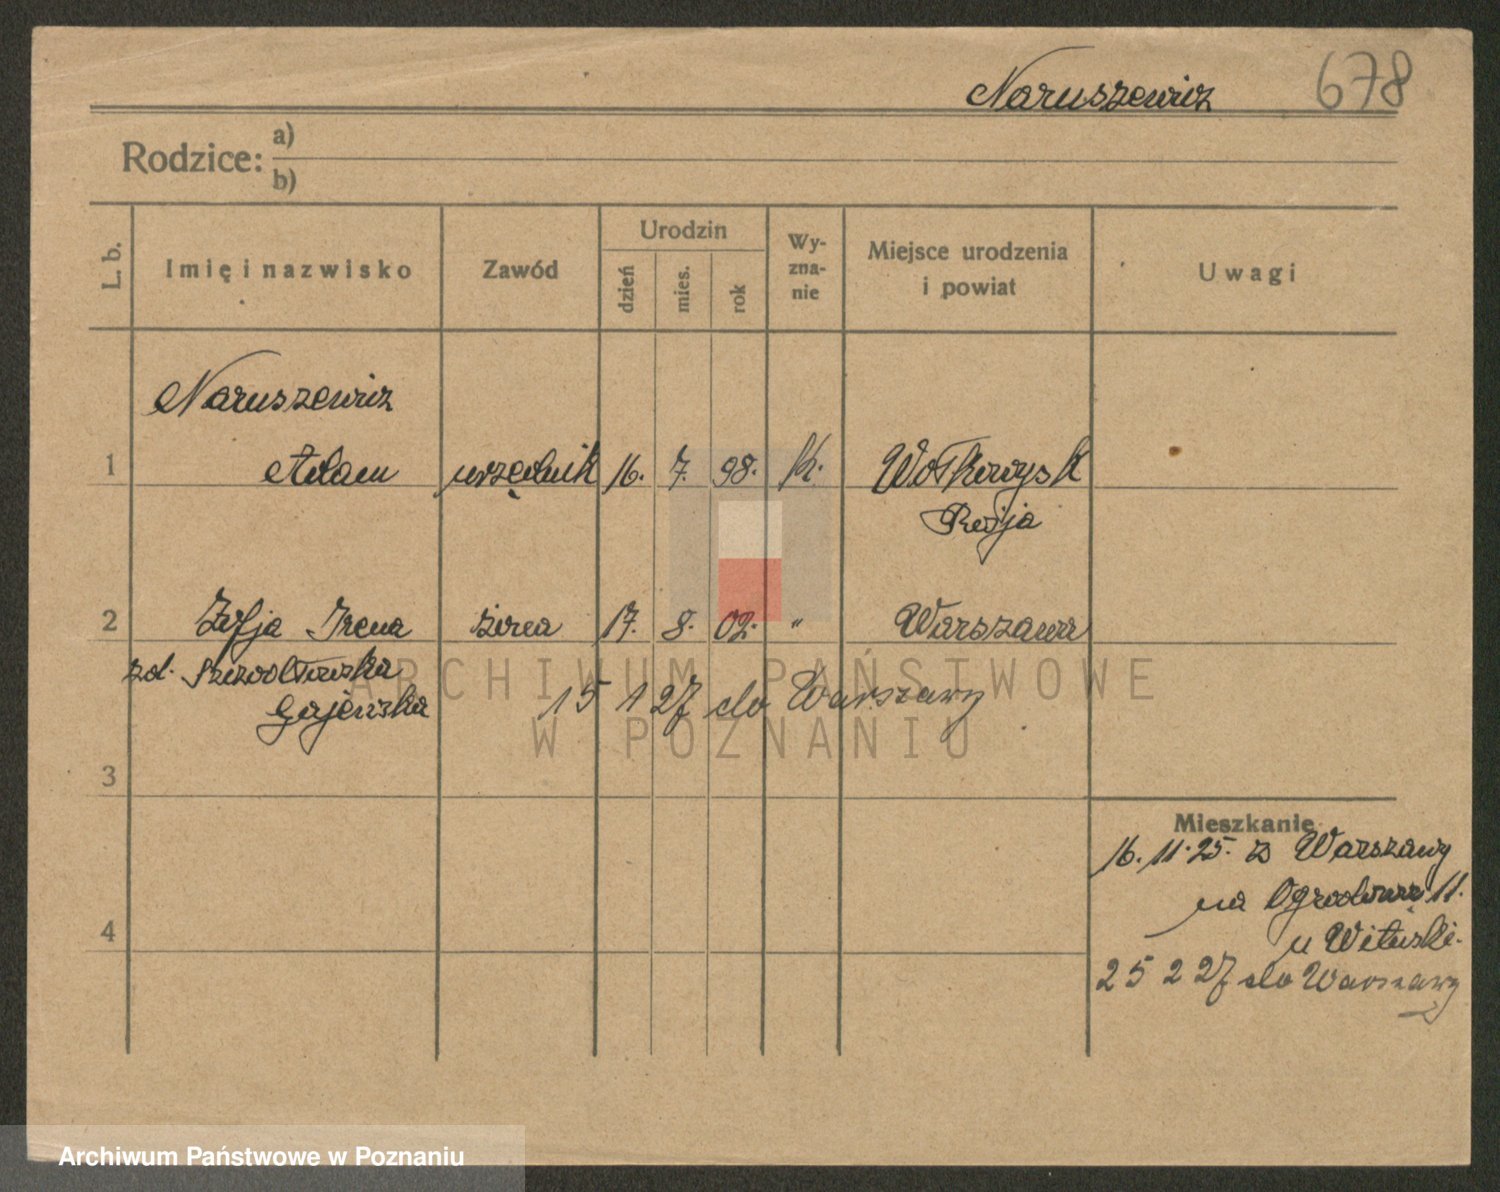 Naruszewicz 678
Rodzice: a)
b)
L. b.
Imię i nazwisko
Zawód
Urodzin
dzień
mies.
rok
Wy-
zna-
nie
Miejsce urodzenia
i powiat
Uwagi
Naruszewicz
1 Adam urzędnik 16. 7. 98. k. Wołkowysk
Rosja
2 Zofja Irena żona 17. 8. 02. " Warszawa
zd.
Gajewska 15 1 27 do Warszawy
3
Mieszkanie
16. 11. 25. z Warszawy
na Ogrodową 11.
u
4
25 2 27 do Warszawy
ARCHIWUM PAŃSTWOWE
W POZNANIU
Archiwum Państwowe w Poznaniu